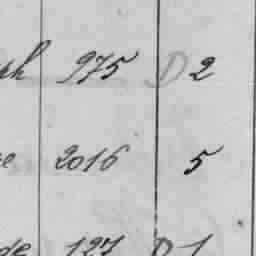 975 D 2
2016 5
de 127 D 1